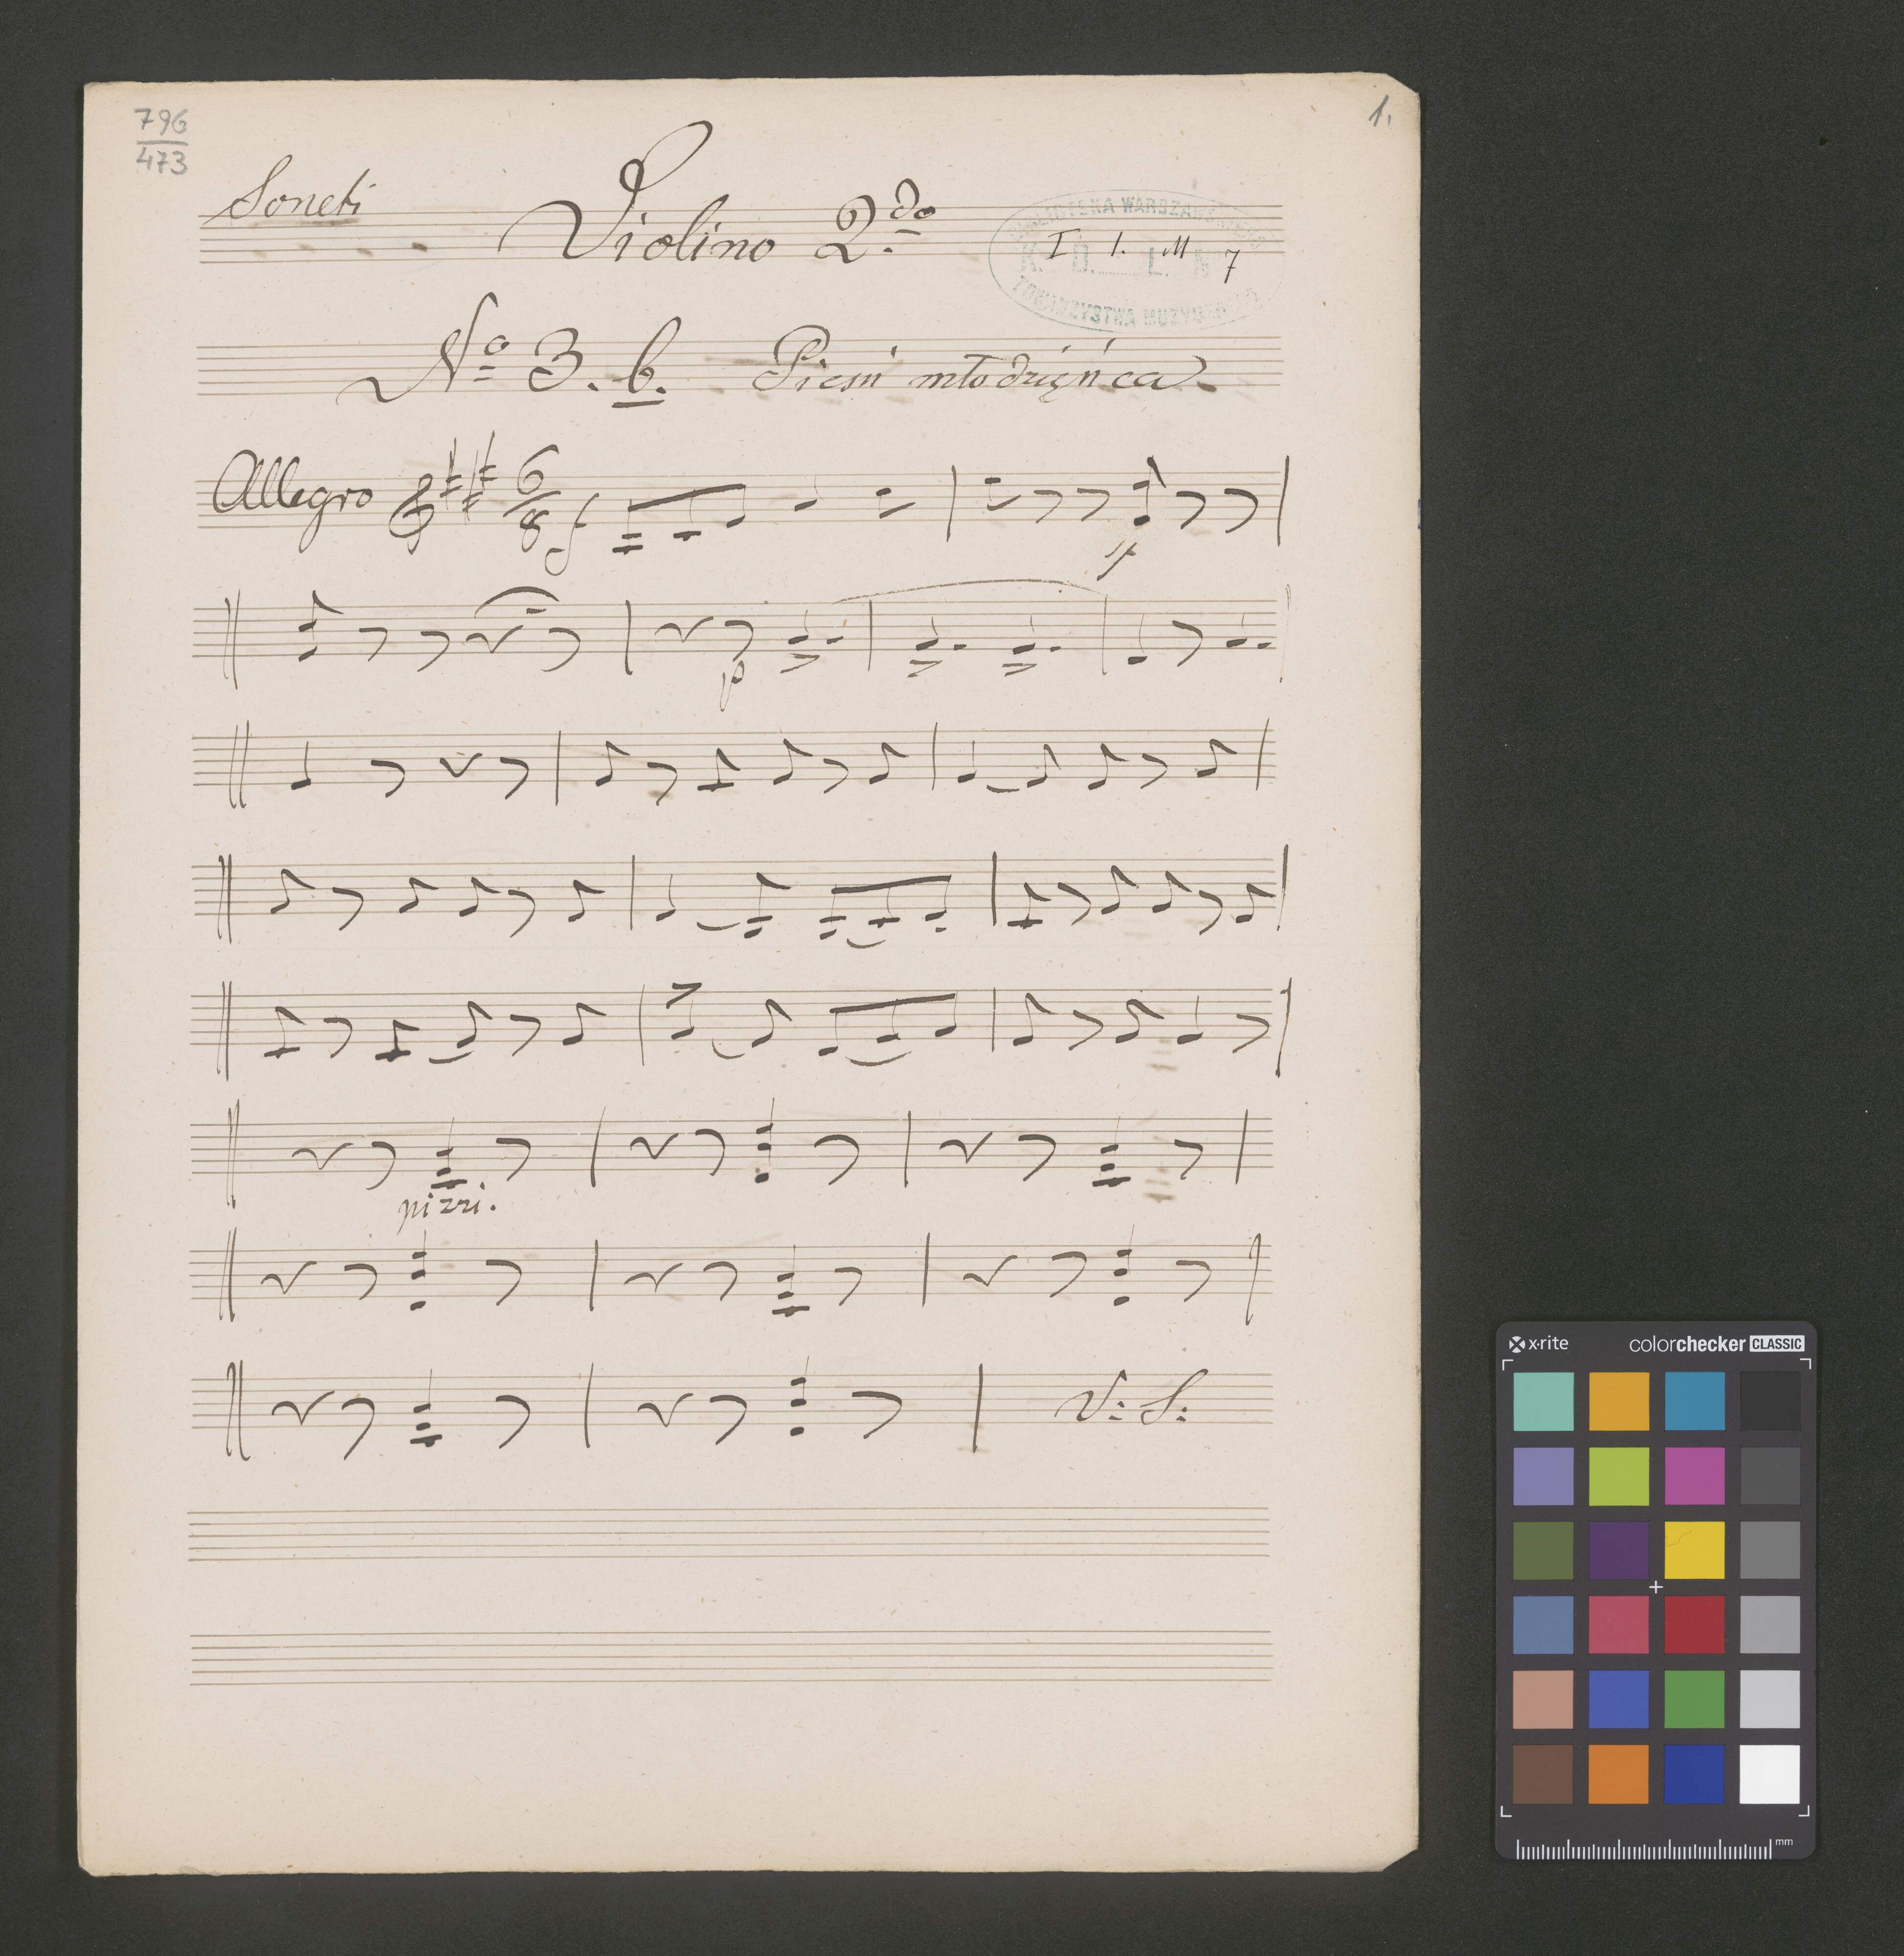 796
473
1.
Soneti
Violino 2.do
BIBLIOTEKA WARSZAWSKIEGO
K. D. L. N
I 1. M 7
TOWARZYSTWA MUZYCZNEGO
No 3. b. Pieśń młodzięńca
Allegro 6/8 f
p
pizzi.
V: S:
x·rite colorchecker CLASSIC
mm